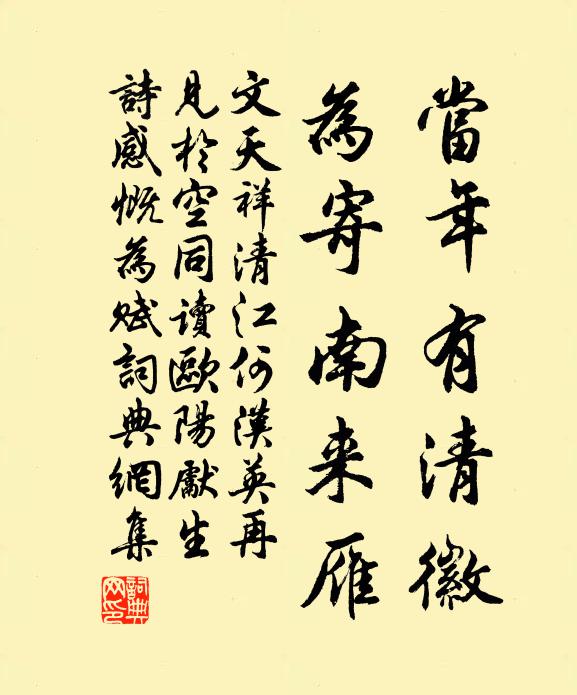 當年有清徽
為寄南来雁
文天祥清江何漢英再
見於空同讀歐陽獻生
詩感慨為賦詞典網集
詞典網印